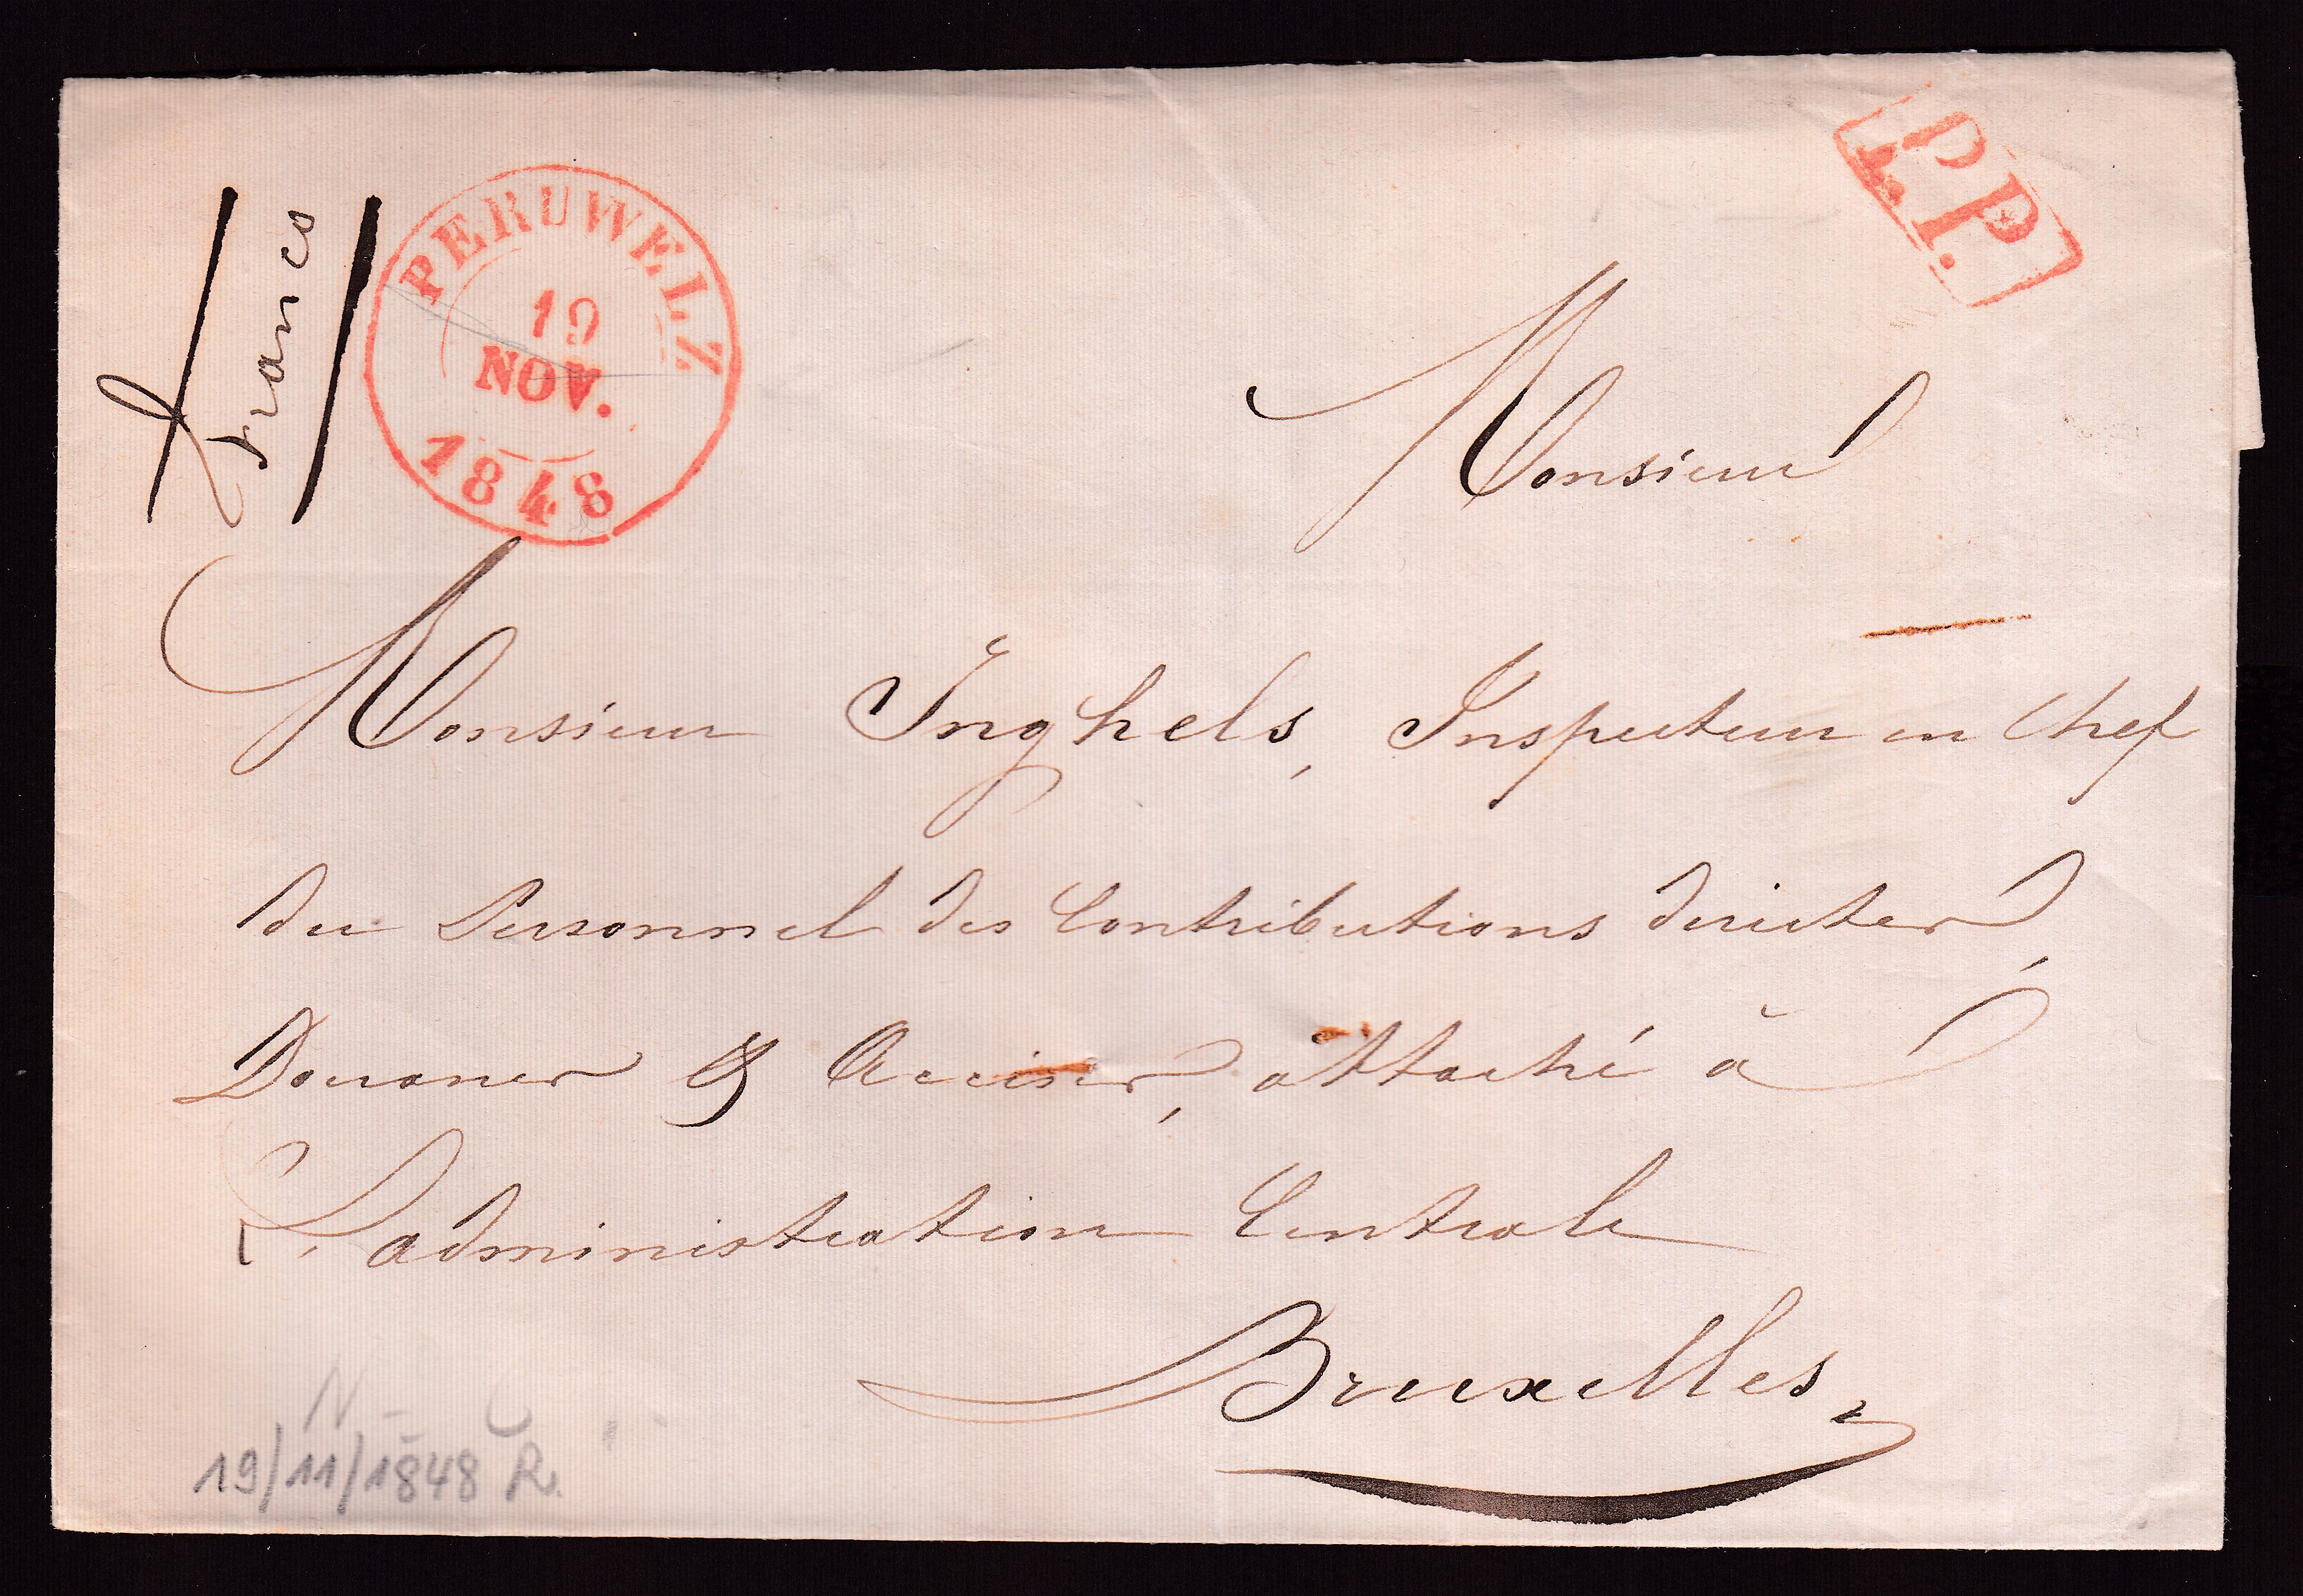 franco
PERUWELZ
19
NOV.
1848
P.P.
Monsieur
Monsieur Inghels, Inspecteur en Chef
du Personnel des Contributions directes,
Douanes & Accises, attaché à
L'administration Centrale
Bruxelles,
19/11/1848 R.